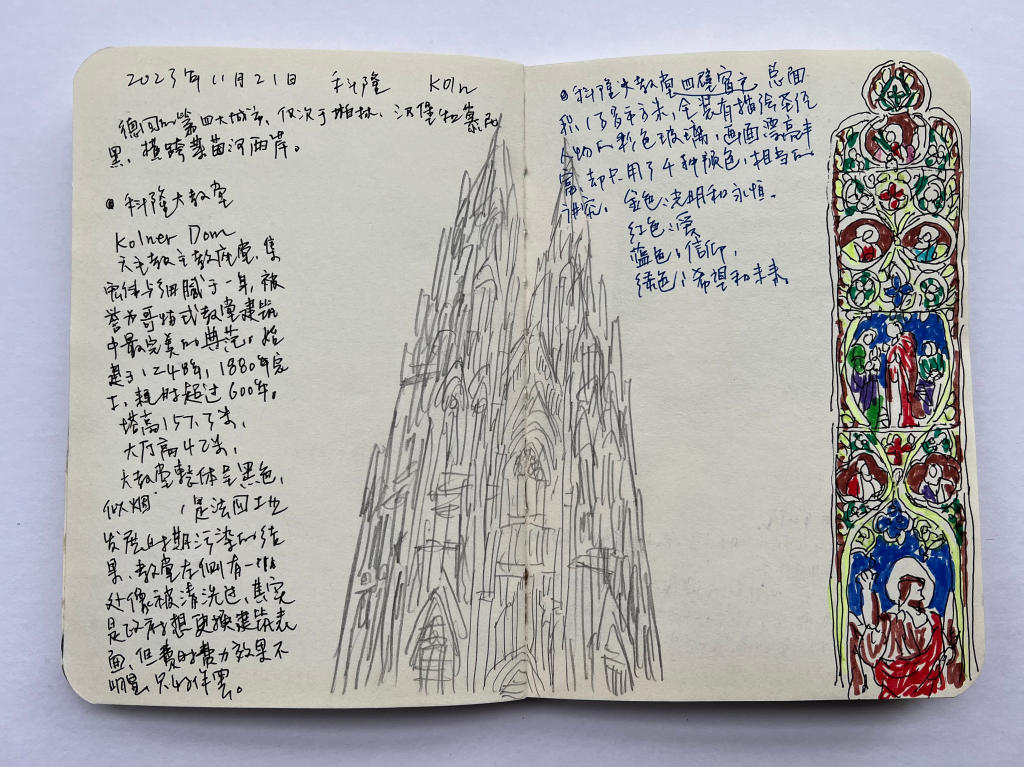 2023年11月21日 科隆 Köln
德国的第四大城市,仅次于柏林、汉堡和慕尼
黑,横跨莱茵河两岸。
科隆大教堂
Kolner Dom
天主教主教座堂,集
宏伟与细腻于一身,被
誉为哥特式教堂建筑
中最完美的典范。始
建于1248年,1880年完
工,耗时超过600年。
塔高157.3米,
大厅高42米,
大教堂整体呈黑色,
似烟 ,是法国工业
发展时期污染的结
果,教堂左侧有一些
处像被清洗过,其实
是政府想更换建筑表
面,但费时费力效果不
明显,只好作罢。
科隆大教堂四壁窗户,总面
积1万多平方米,全装有描绘圣经
人物的彩色玻璃,画面漂亮丰
富,却只用了4种颜色,相当的
讲究。金色:光明和永恒。
红色:爱
蓝色:信仰,
绿色:希望和未来